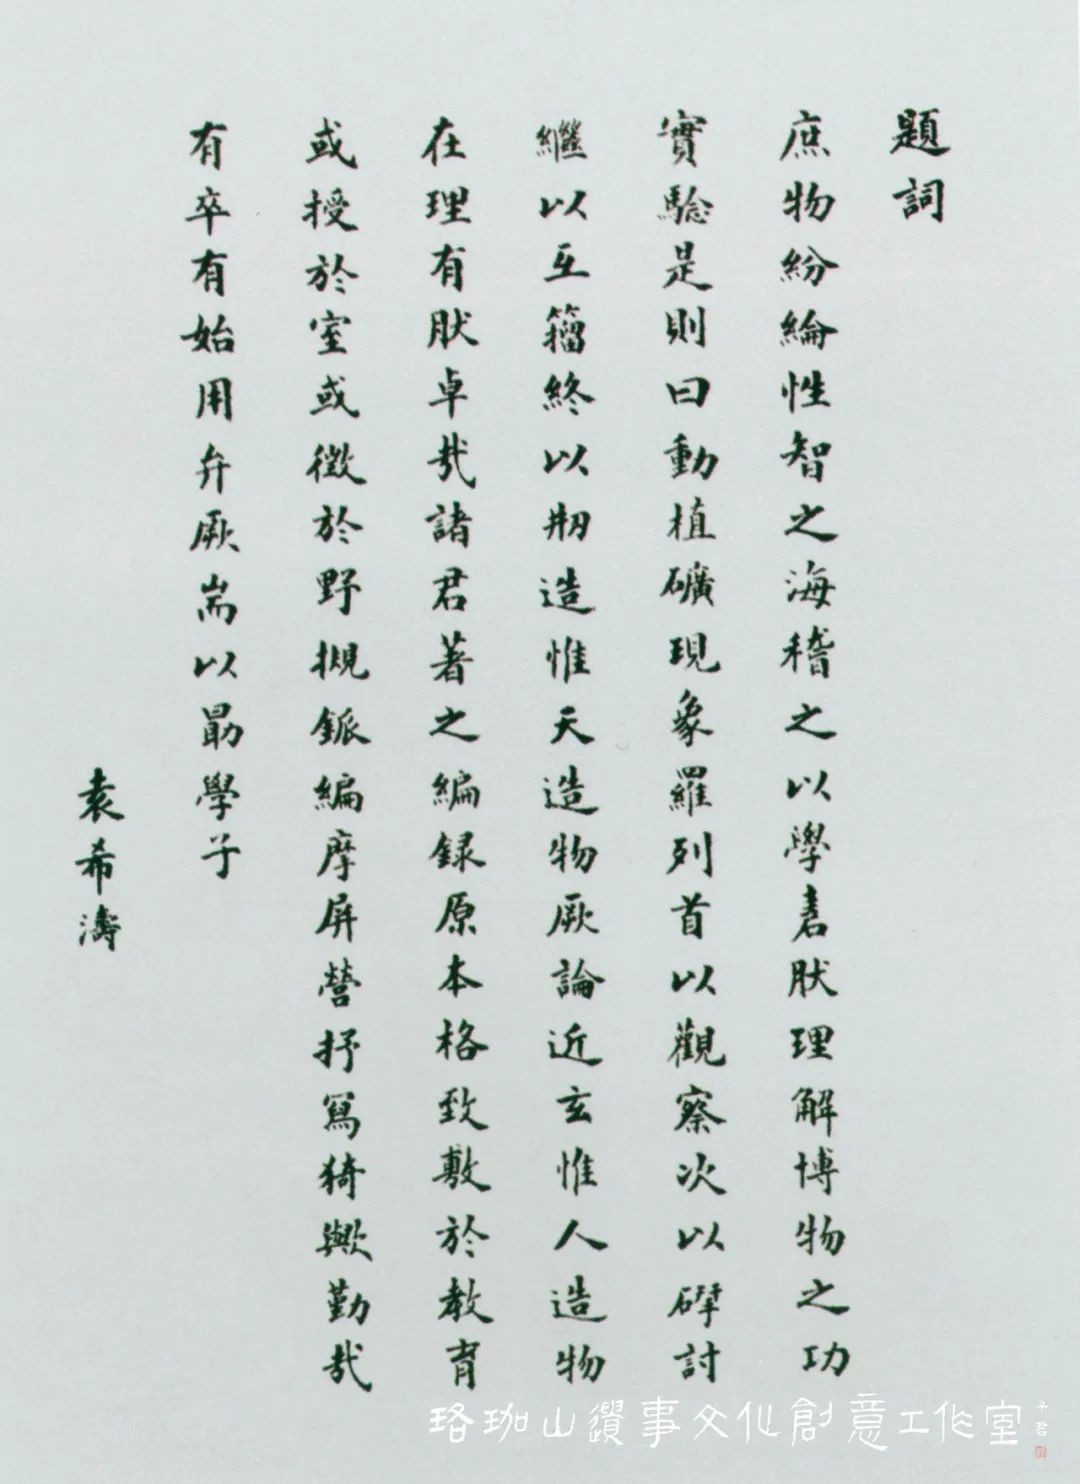 題詞
庶物紛綸性智之海稽之以學砉肰理解博物之功
實驗是則曰動植礦現象羅列首以觀察次以硏討
繼以互籀終以刱造惟天造物厥論近玄惟人造物
在理有肰卓哉諸君著之編録原本格致敷於教育
或授於室或徵於野摫鎃編摩屏營抒寫猗歟勤哉
有卒有始用弁厥耑以勖學子
袁希濤
珞珈山遺事文化創意工作室